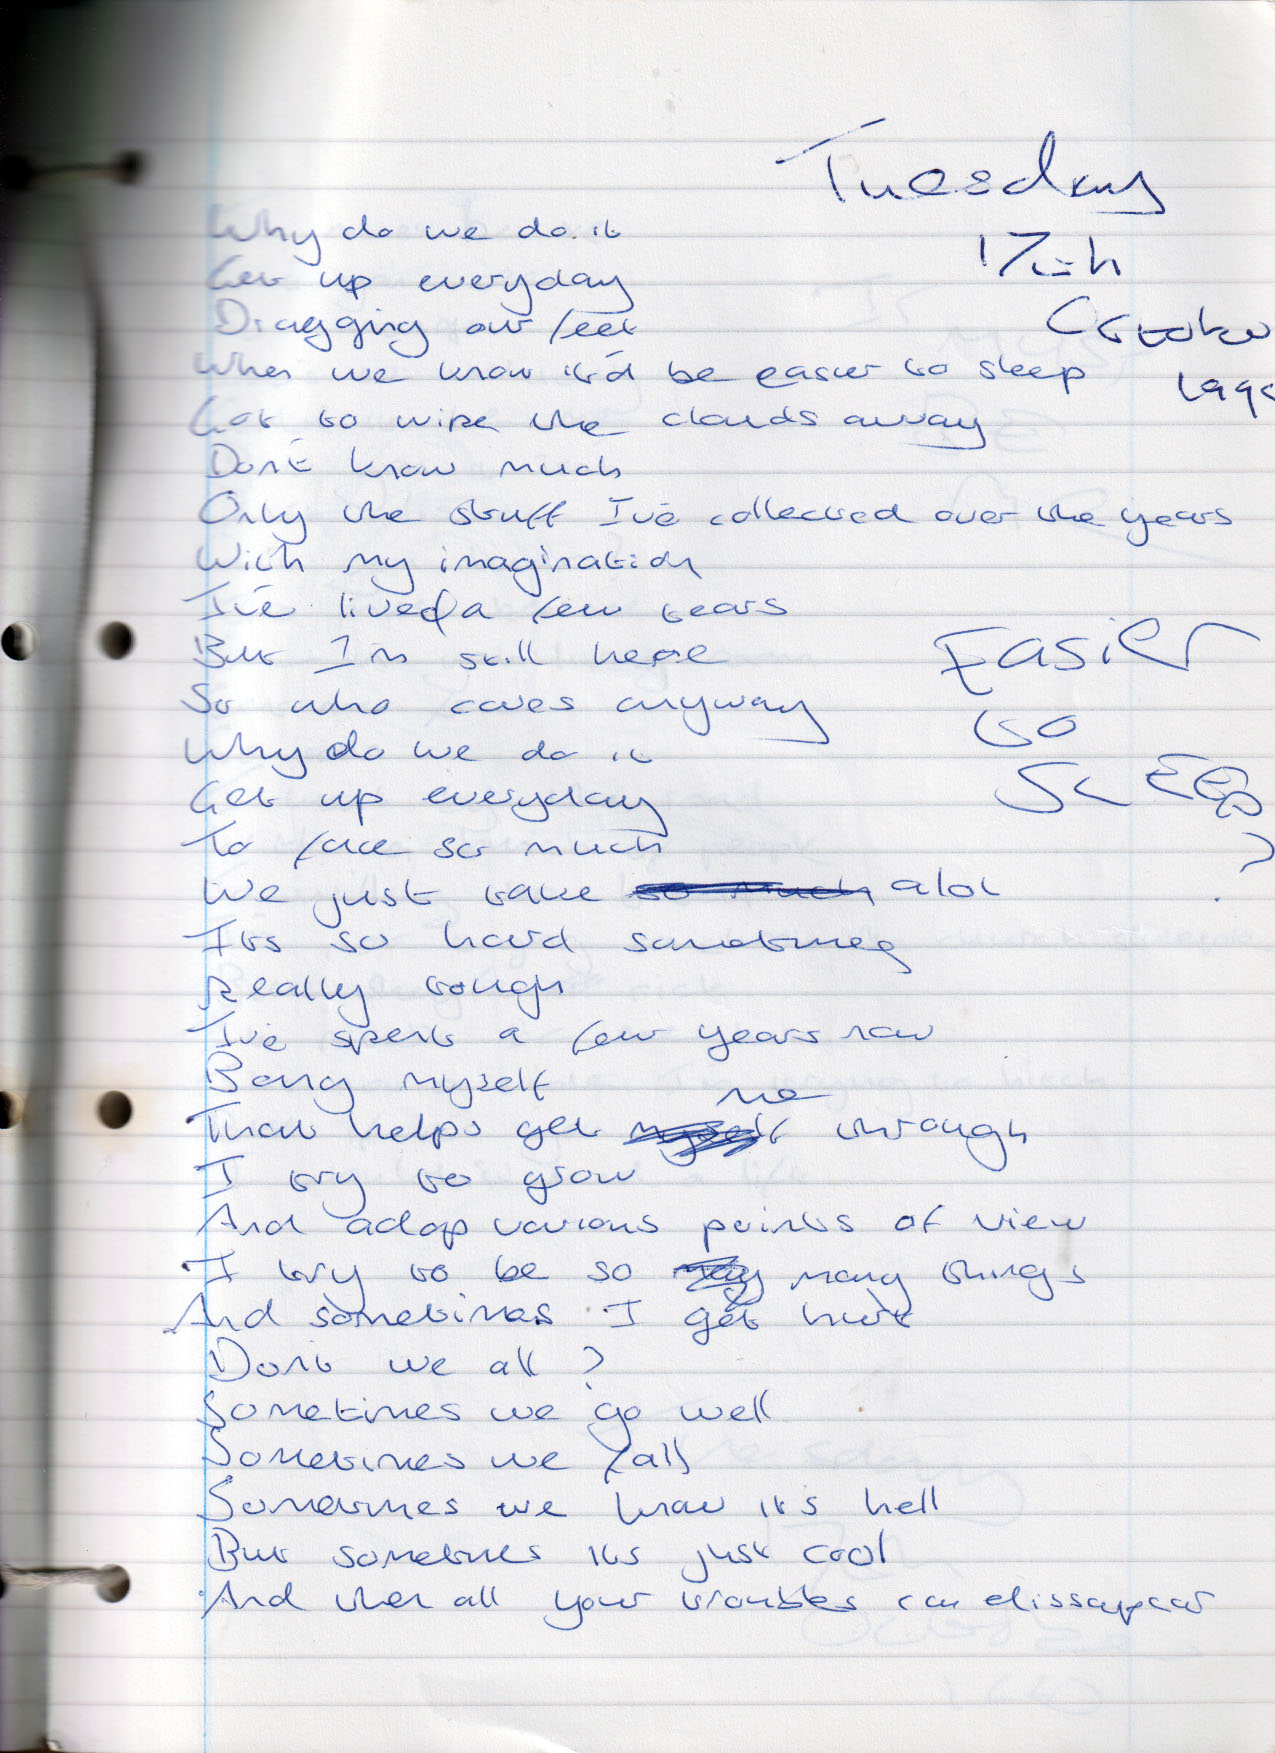 Tuesday
17th
October
Why do we do it
Get up everyday
Dragging our feet
When we know it'd be easier to sleep
Got to wipe the clouds away
Don't know much
Only the stuff I've collected over the years
With my imagination
I've lived a few years
But I'm still here
So who cares anyway
Easier
to
SLEEP
?
Why do we do it
Get up everyday
To face so much
We just take so much alot
Its so hard sometimes
Really tough
I've spent a few years now
Being myself
That helps get myself me through
I try to grow
And adop various points of view
I try to be so many things
And sometimes I get hurt
Don't we all ?
Sometimes we go well
Sometimes we fall
Sometimes we know it's hell
But sometimes its just cool
And when all your troubles can dissapear